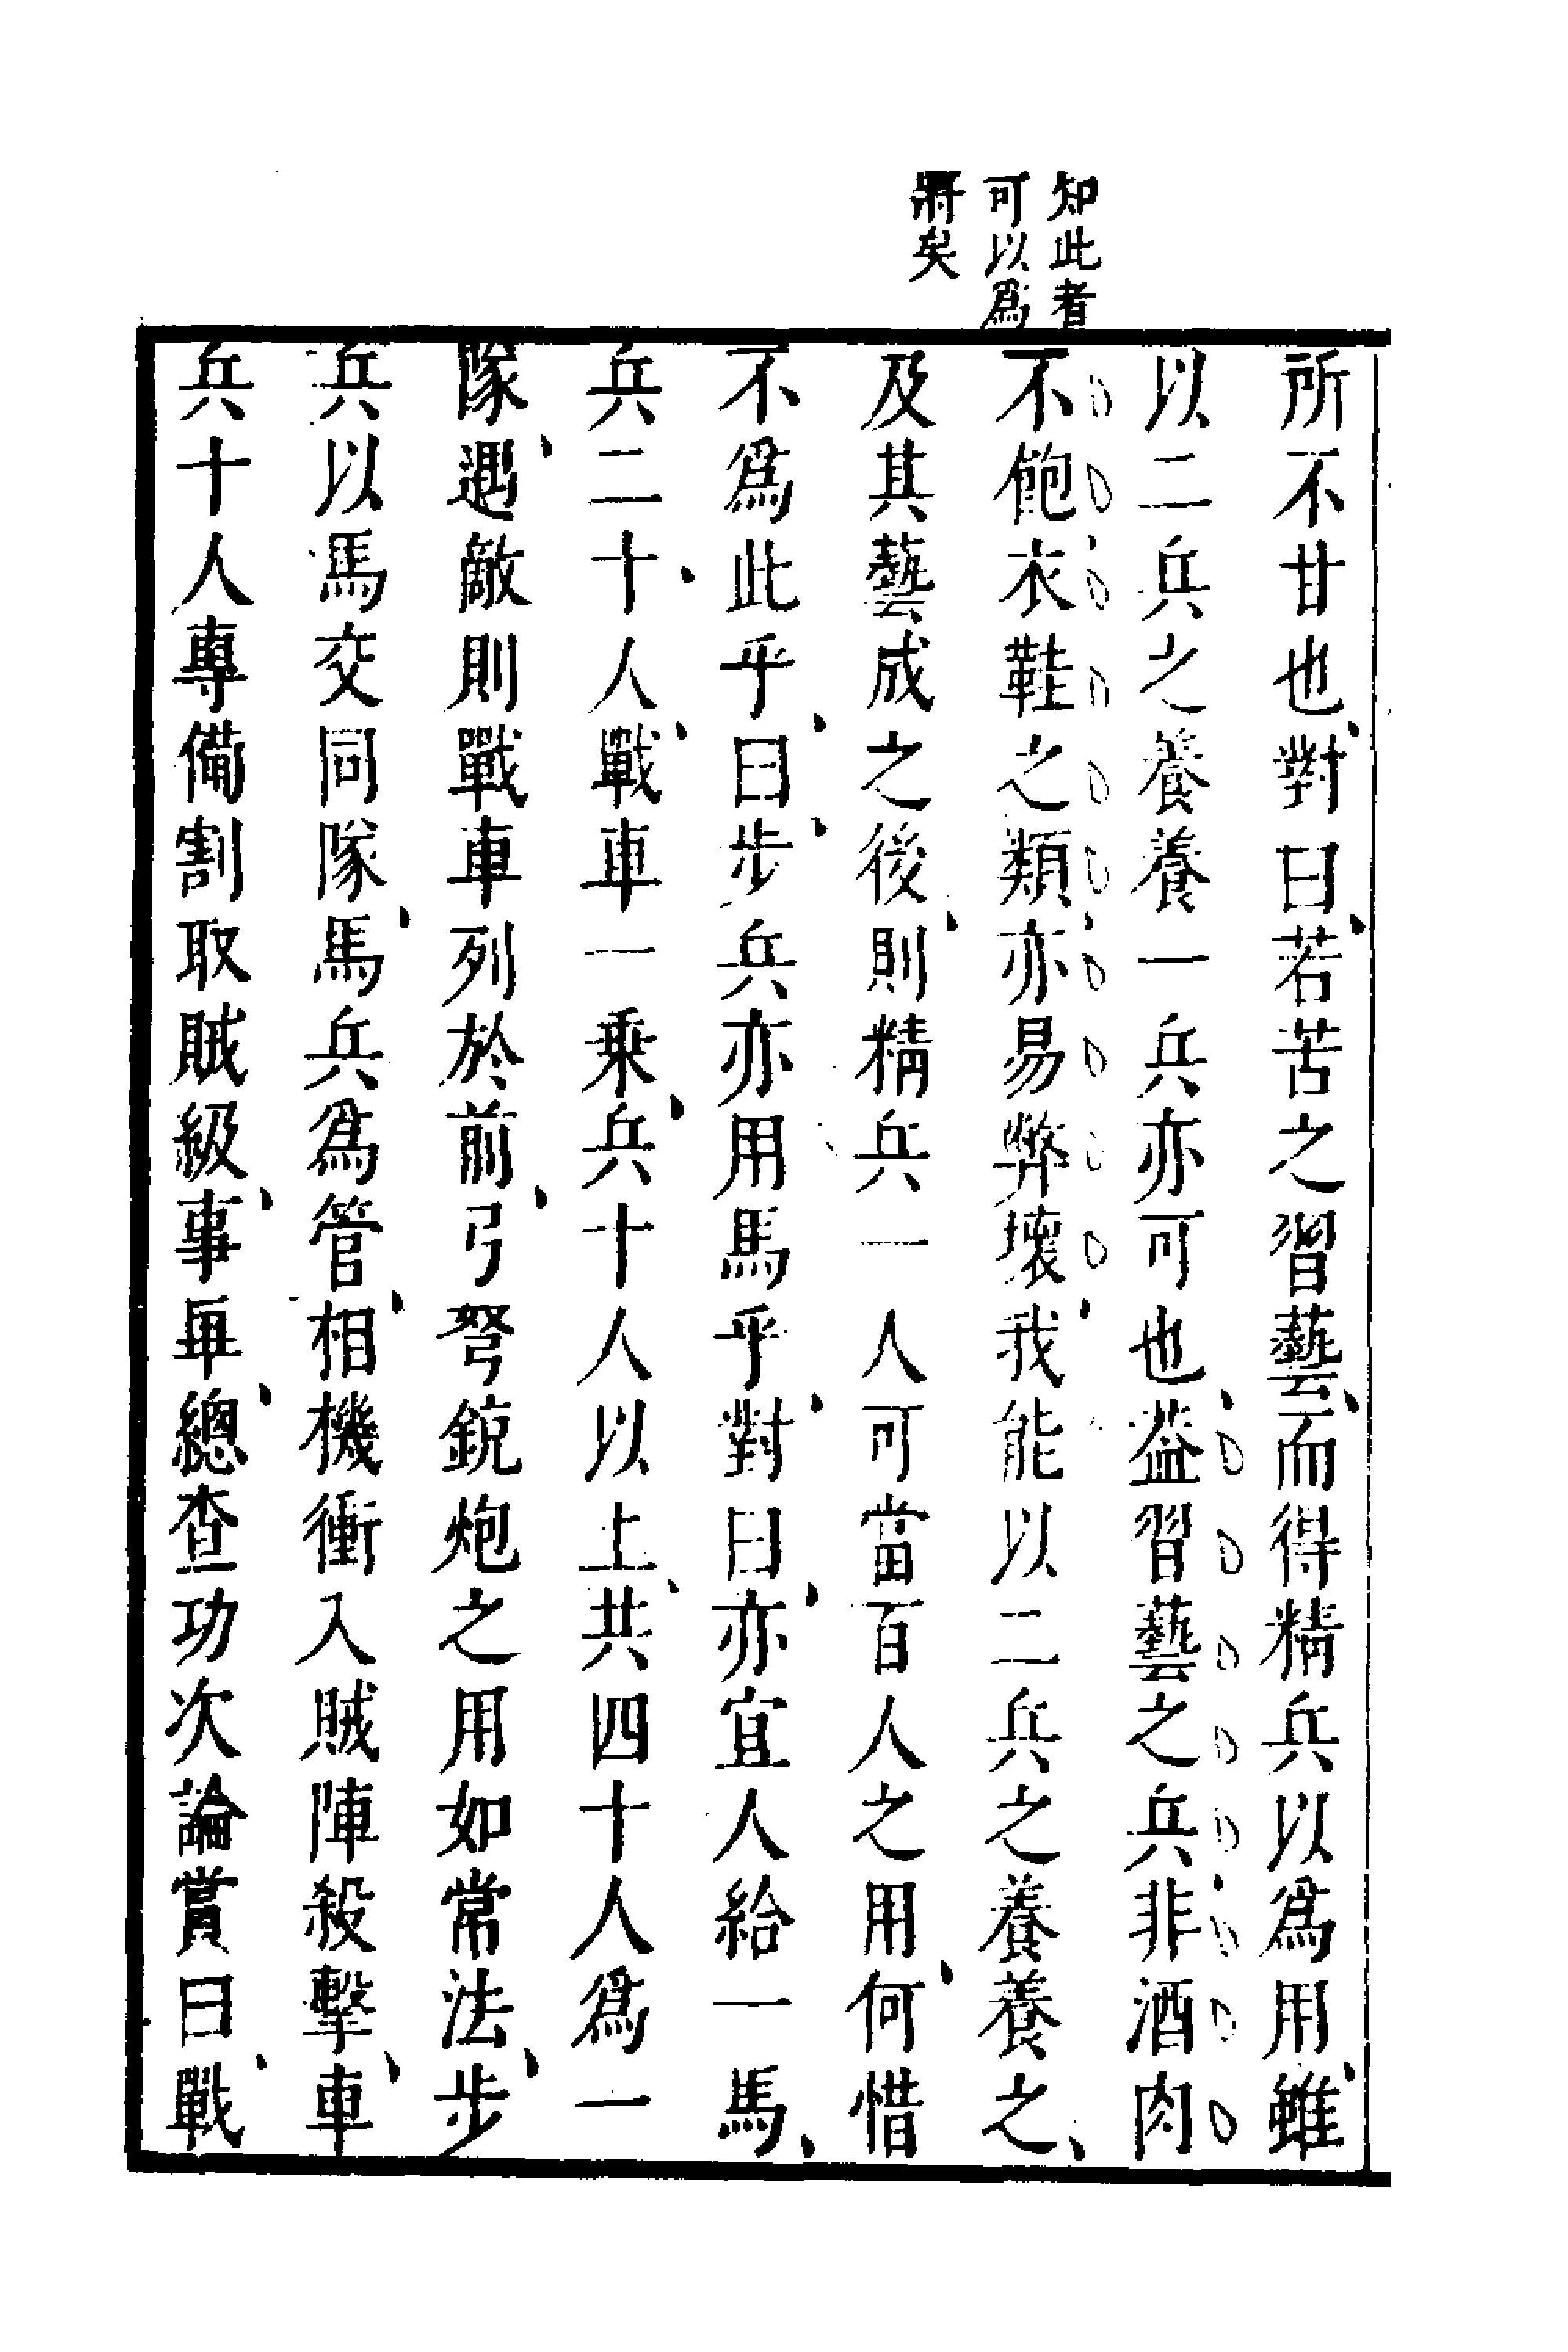 知此者
可以爲
將矣
所不甘也對曰若苦之習藝而得精兵以爲用雖
以二兵之養養一兵亦可也葢習藝之兵非酒肉
不飽衣鞋之類亦易弊壞我能以二兵之養養之
及其藝成之後則精兵一人可當百人之用何惜
不爲此乎曰步兵亦用馬乎對曰亦宜人給一馬
兵二十人戰車一乘兵十人以上共四十人爲一
隊遇敵則戰車列於前弓弩銃炮之用如常法步
兵以馬交同隊馬兵爲管相機衝入賊陣殺擊車
兵十人專備割取賊級事畢總查功次論賞曰戰